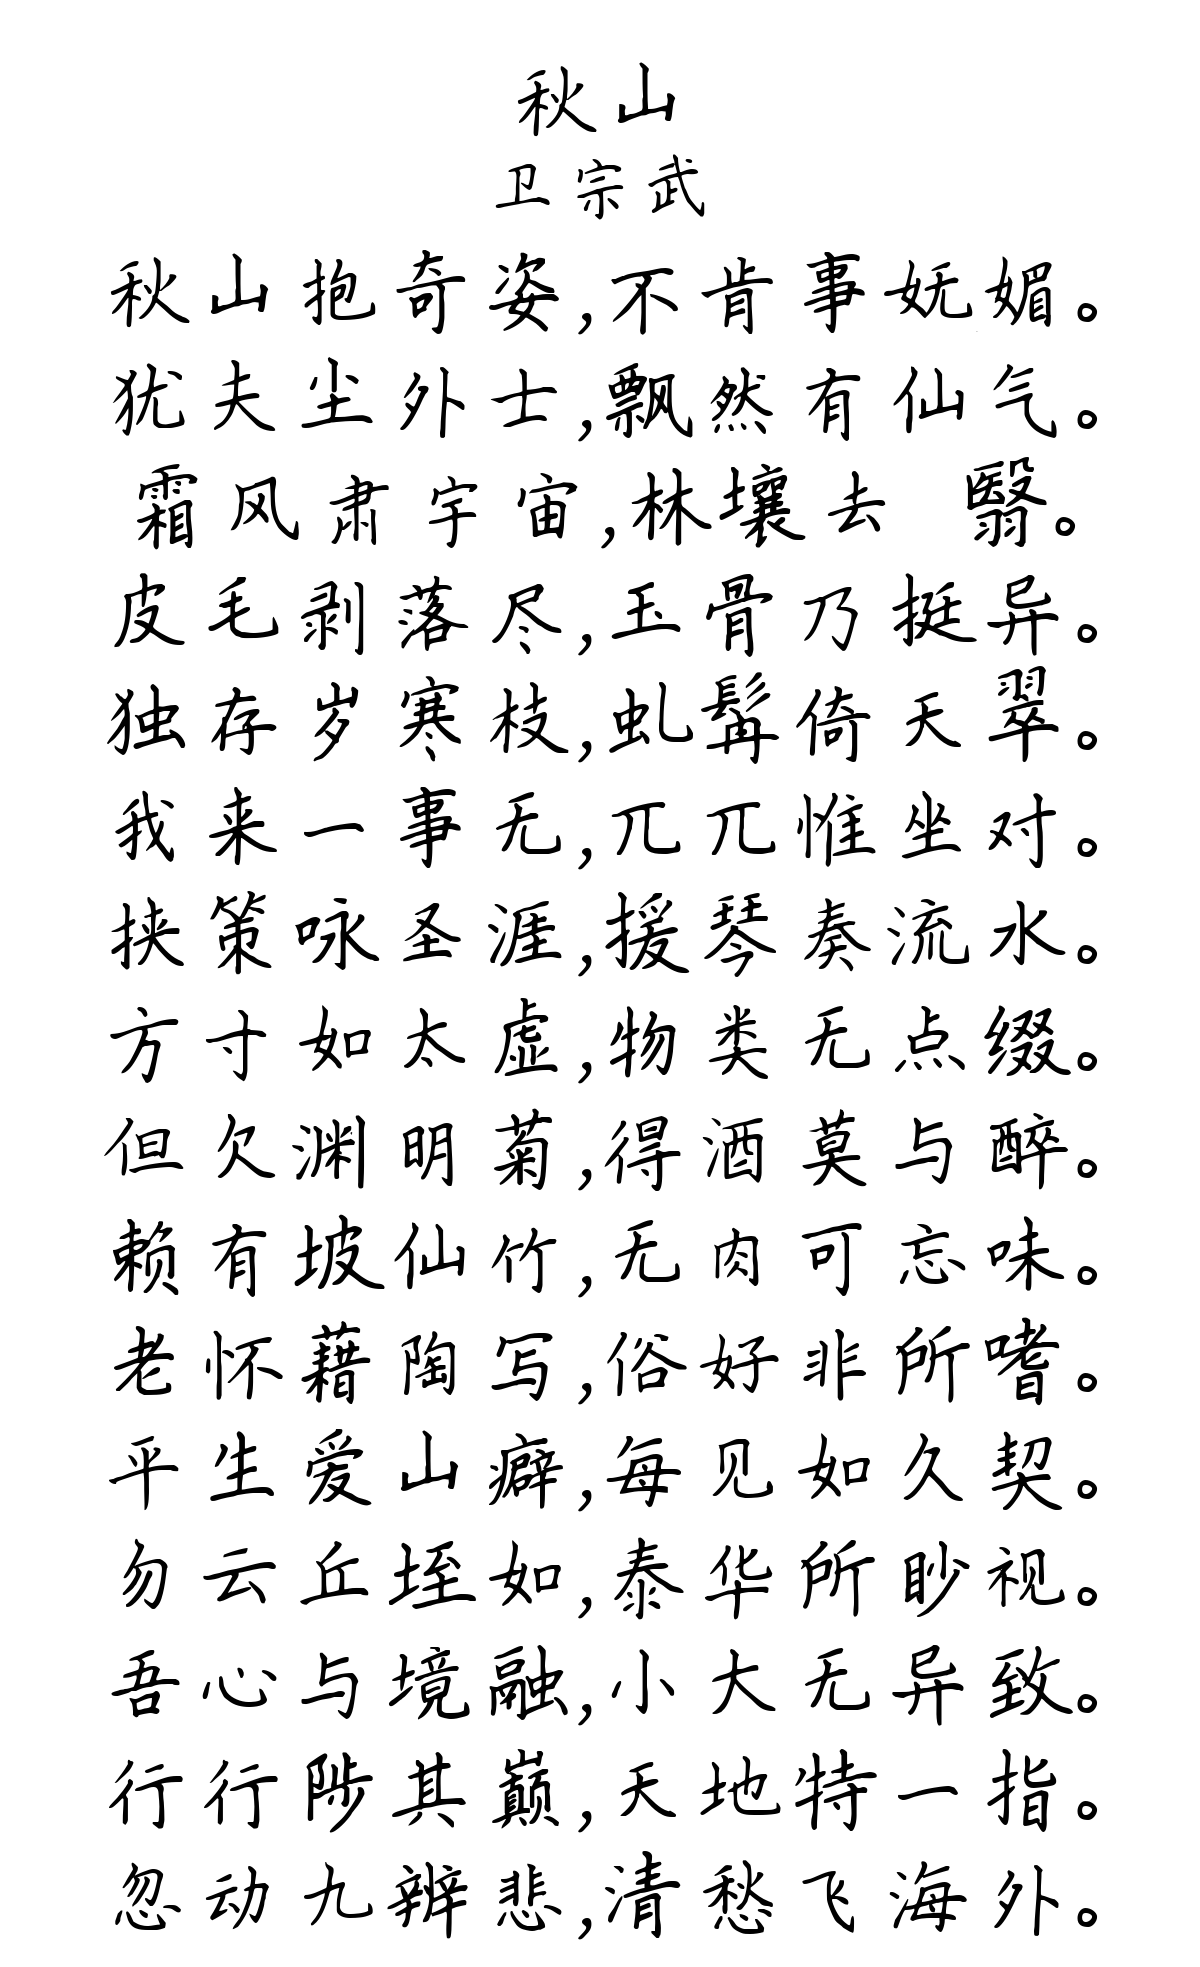 秋山
卫宗武
秋山抱奇姿,不肯事妩媚。
犹夫尘外士,飘然有仙气。
霜风肃宇宙,林壤去 翳。
皮毛剥落尽,玉骨乃挺异。
独存岁寒枝,虬髯倚天翠。
我来一事无,兀兀惟坐对。
挟策咏圣涯,援琴奏流水。
方寸如太虚,物类无点缀。
但欠渊明菊,得酒莫与醉。
赖有坡仙竹,无肉可忘味。
老怀藉陶写,俗好非所嗜。
平生爱山癖,每见如久契。
勿云丘垤如,泰华所眇视。
吾心与境融,小大无异致。
行行陟其巅,天地特一指。
忽动九辨悲,清愁飞海外。